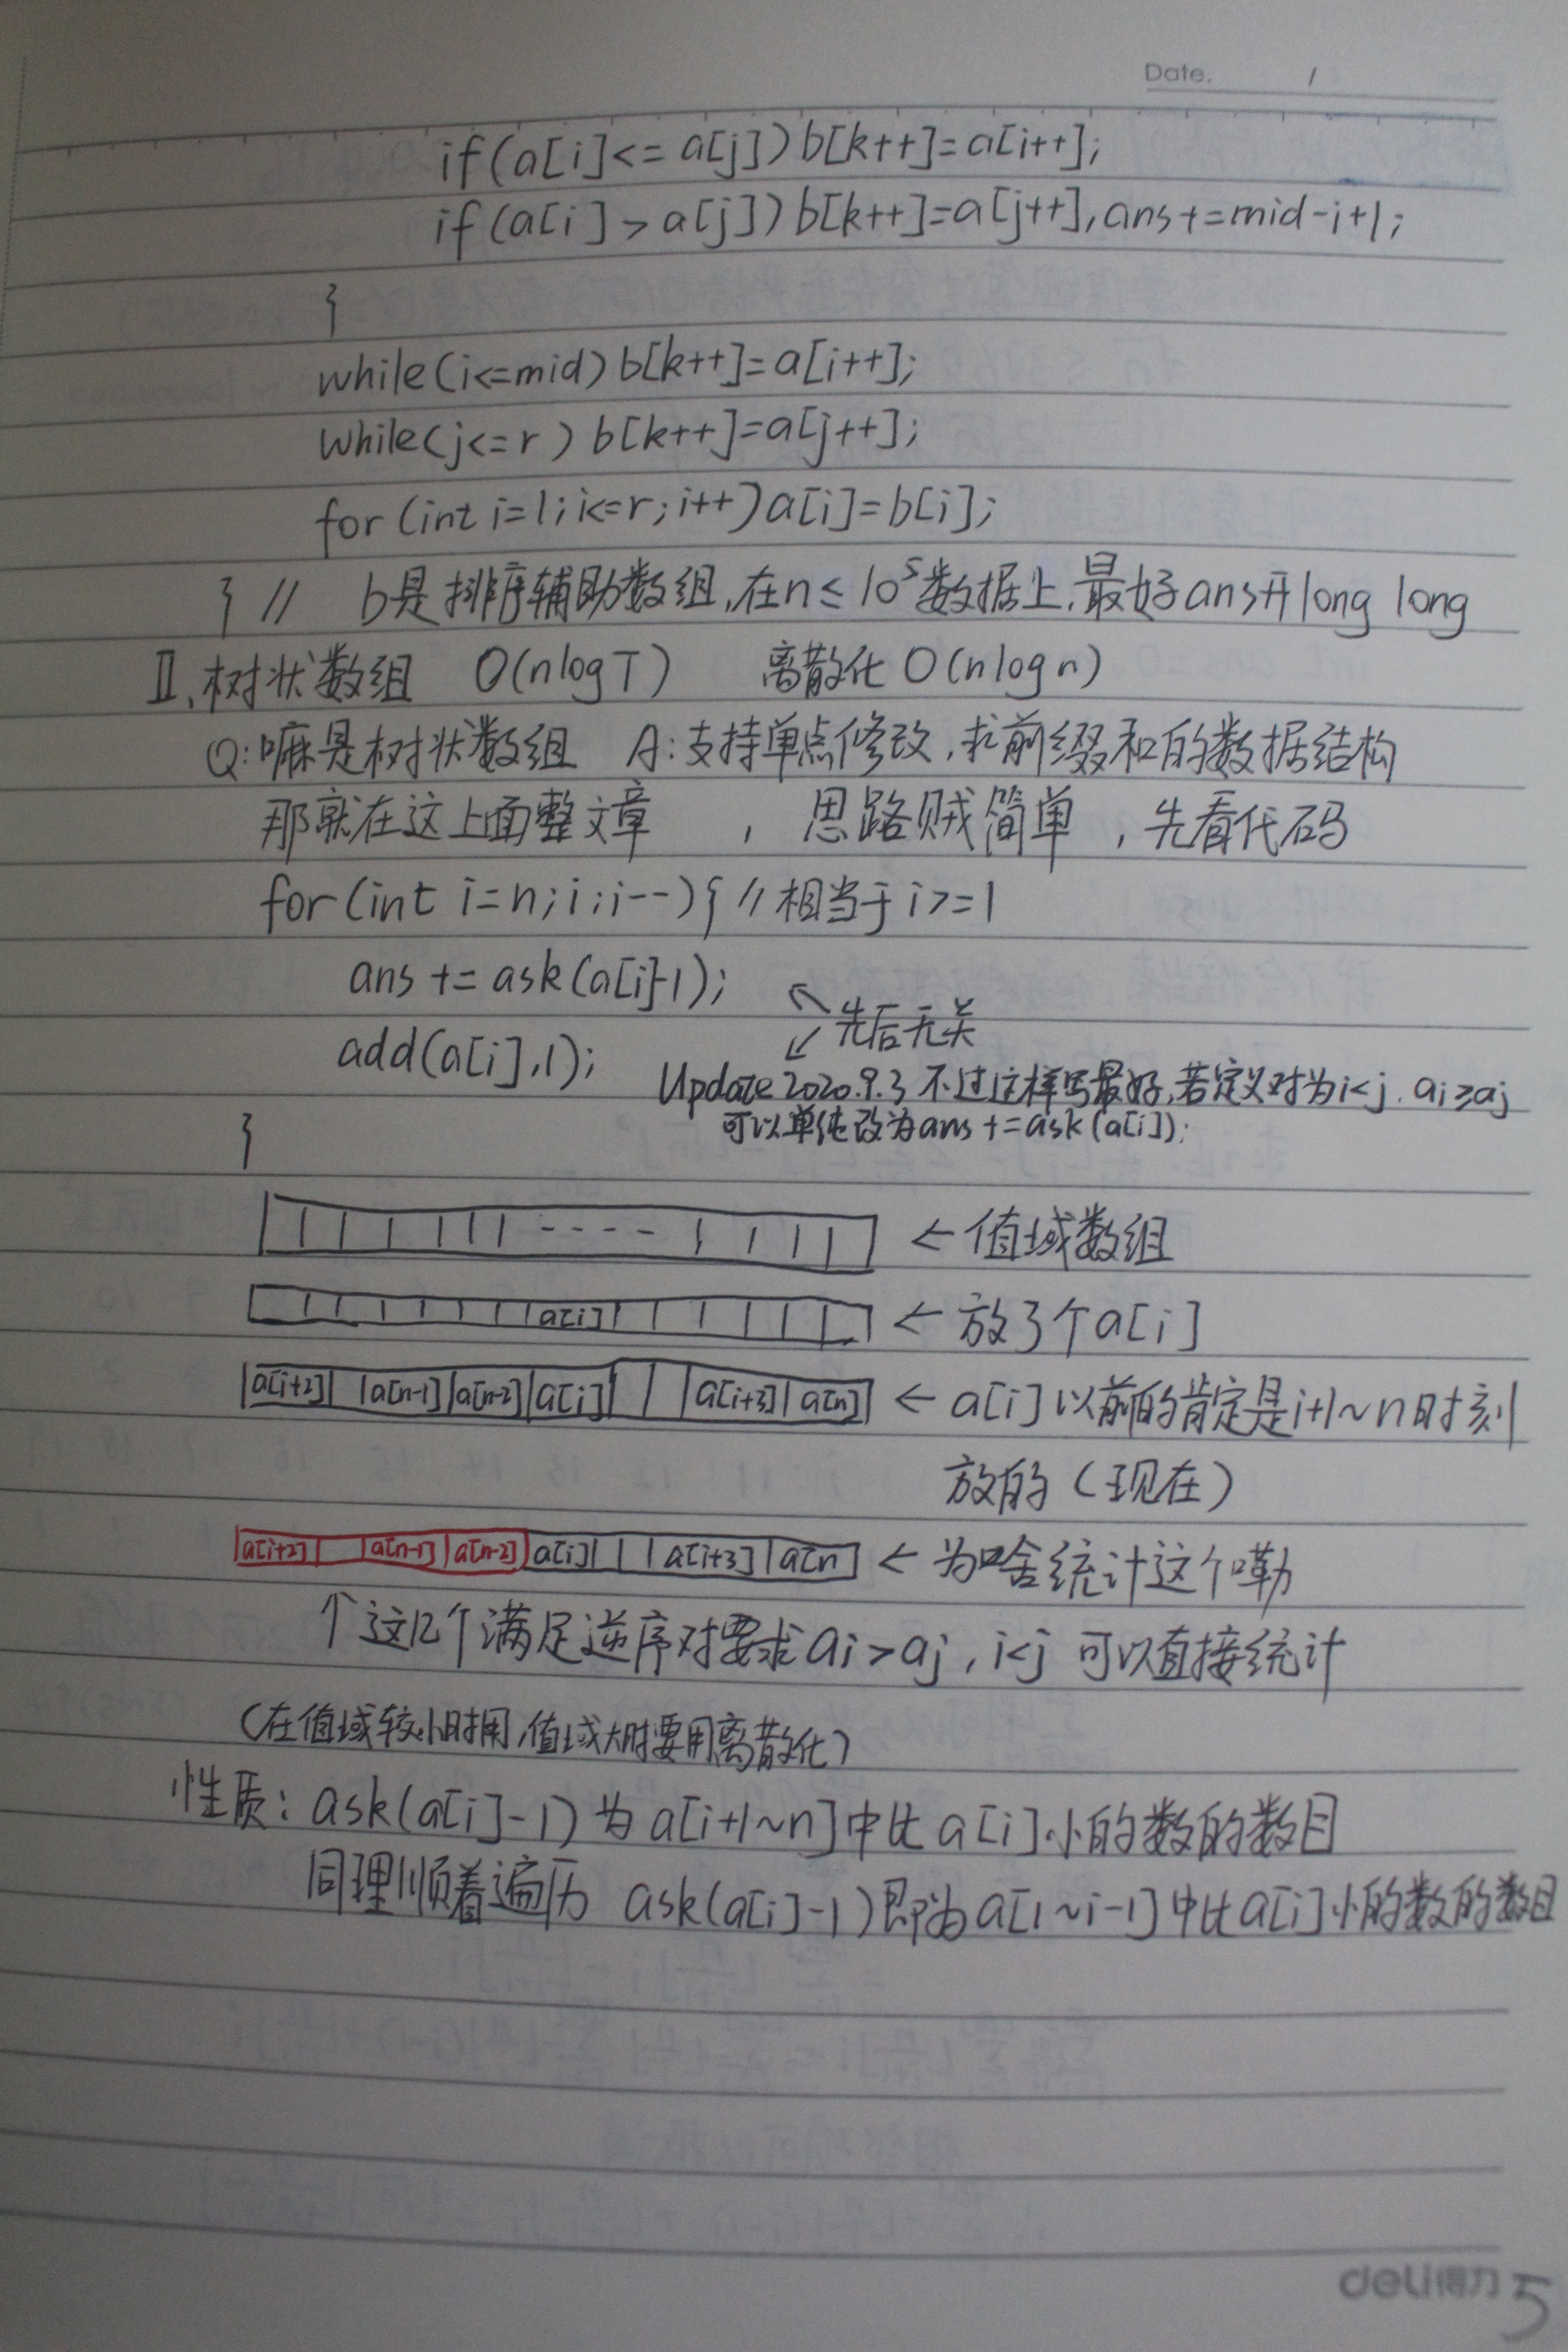 Date. /
if(a[i]<=a[j])b[k++]=a[i++];
if(a[i]>a[j])b[k++]=a[j++],ans+=mid-i+1;
}
while(i<=mid)b[k++]=a[i++];
while(j<=r)b[k++]=a[j++];
for(int i=l;i<=r;i++)a[i]=b[i];
} // b是排序辅助数组,在n≤10⁵数据上,最好ans开long long
Ⅱ、树状数组 O(nlogT) 离散化 O(nlogn)
Q:嘛是树状数组 A:支持单点修改,求前缀和的数据结构
那就在这上面整文章 , 思路贼简单 ,先看代码
for(int i=n;i;i--){ //相当于i>=1
ans+=ask(a[i]-1);
↖先后无关
↙
add(a[i],1);
Update 2020.9.3 不过这样写最好,若定义对为i<j,ai≥aj
可以单纯改为ans+=ask(a[i]);
}
---- ←值域数组
a[i] ←放了个a[i]
a[i+2] a[n-1] a[n-2] a[i] a[i+3] a[n] ←a[i]以前的肯定是i+1~n时刻
放的(现在)
a[i+2] a[n-1] a[n-2] a[i] a[i+3] a[n ←为啥统计这个嘞
↑这几个满足逆序对要求ai>aj,i<j 可以直接统计
(在值域较小时用,值域大时要用离散化)
性质:ask(a[i]-1)为a[i+1~n]中比a[i]小的数的数目
同理顺着遍历 ask(a[i]-1)即为a[1~i-1]中比a[i]小的数的数目
deli得力 5